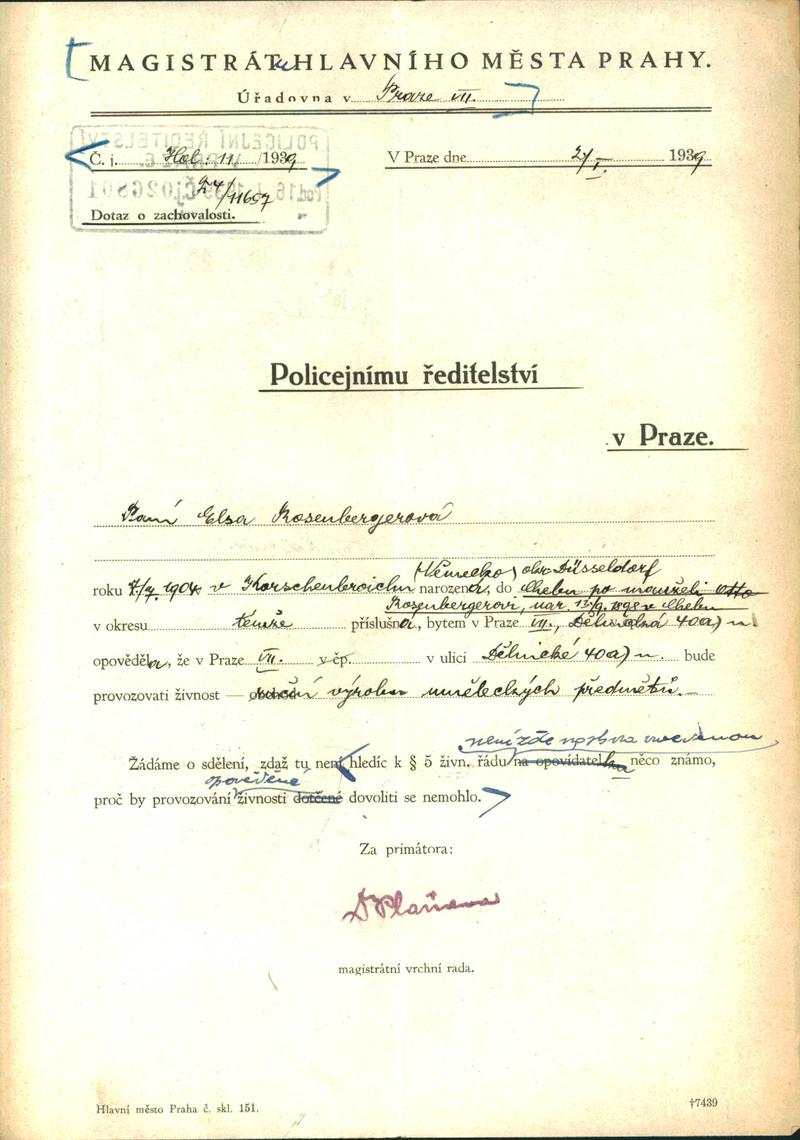 MAGISTRÁTu HLAVNÍHO MĚSTA PRAHY.
Úřadovna v Praze VII.
Č. j. Hol: 11 /1939
V Praze dne 2/I. 1939
27/11657
Dotaz o zachovalosti.
POLICEJNÍ ŘEDITELSTVÍ
Policejnímu ředitelství
v Praze.
Paní Elsa Rosenbergerová
(Německo) okr. Düsseldorf
roku 7/7. 1904 v Korschenbroichu narozená, do Chebu po manželi Otto
Rosenbergerovi, nar. 13/9. 1898 v Chebu
v okresu temže příslušná, bytem v Praze VII., Dělnická 40a) n
opověděla, že v Praze VII. v čp. v ulici Dělnické 40a) n. bude
provozovati živnost — výrobu uměleckých předmětů.
není zde na shora uvedenou
Žádáme o sdělení, zdaž tu není hledíc k § 5 živn. řádu na opovídatelku něco známo,
opověděné
proč by provozování živnosti dotčené dovoliti se nemohlo.
Za primátora:
magistrátní vrchní rada.
Hlavní město Praha č. skl. 151.
†7439